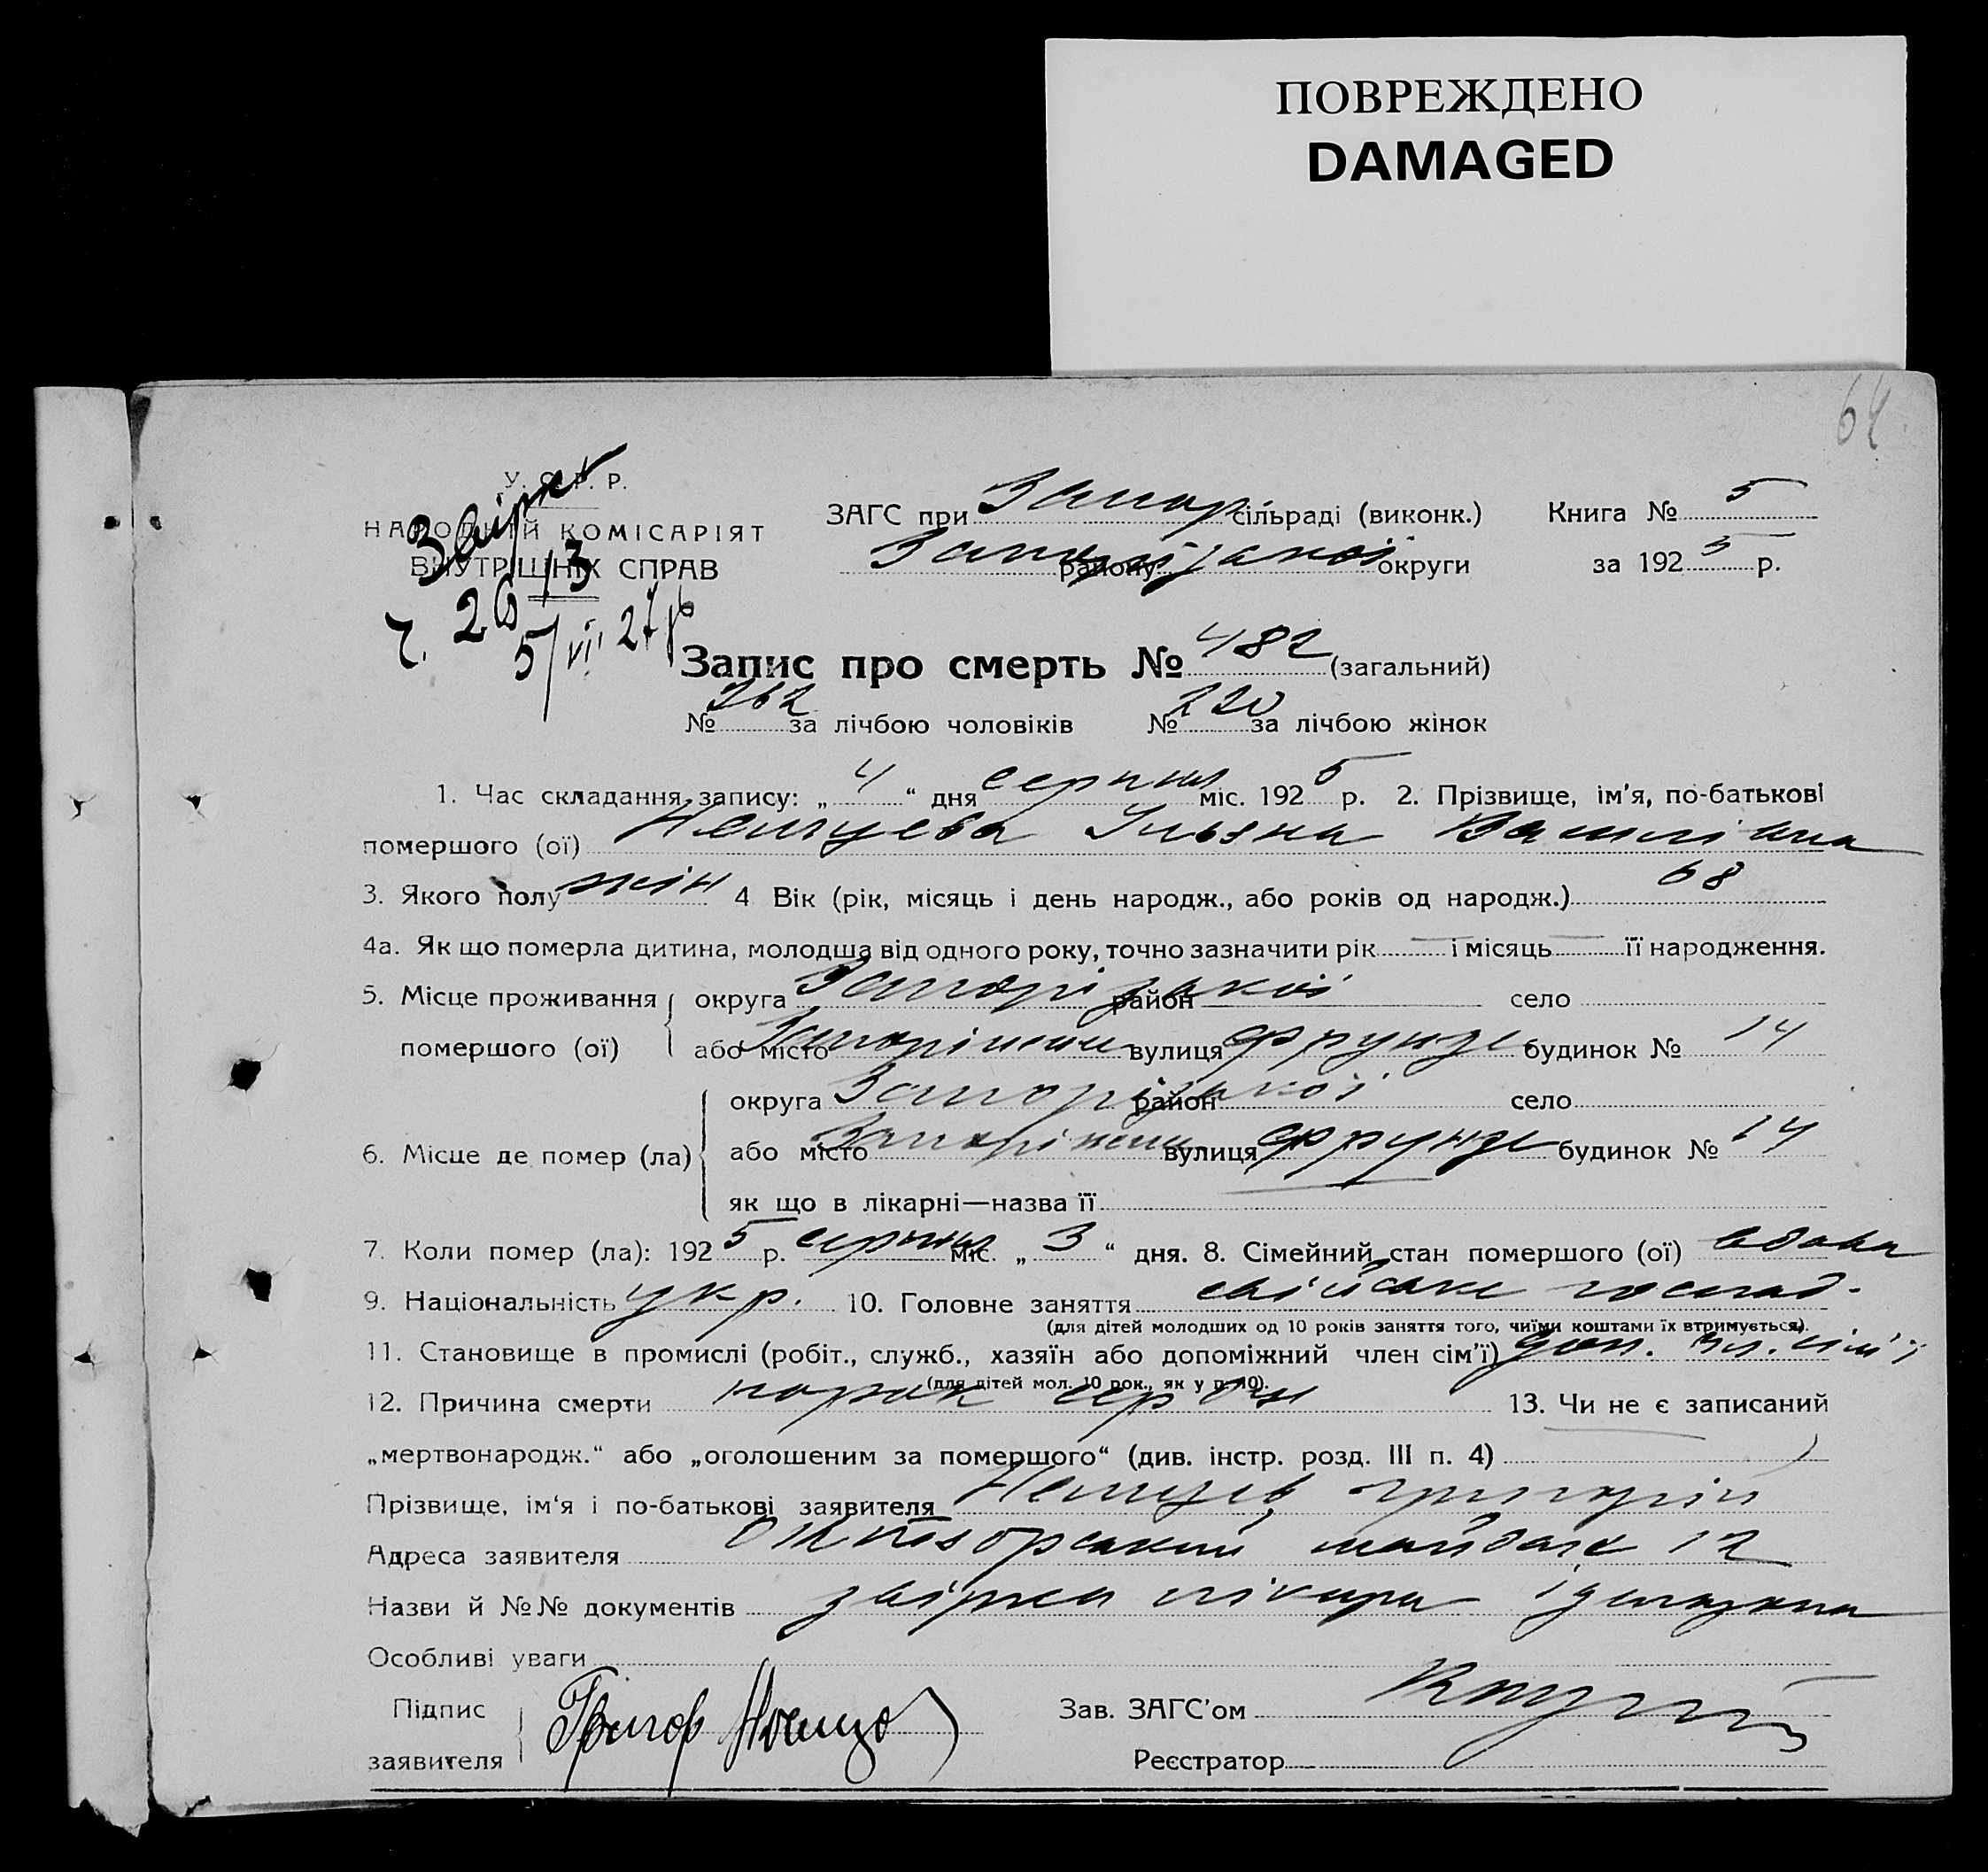 ПОВРЕЖДЕНО
DAMAGED
64
У. С. Р. Р.
НАРОДНІЙ КОМІСАРІЯТ
ВНУТРІШНІХ СПРАВ
ч. 2613
5/VII 27 р
ЗАГС при Запор сільраді (виконк.) Книга № 5
району Запорізької округи за 1925 р.
Запис про смерть № 482 (загальний)
№ 262 за лічбою чоловіків № 220 за лічбою жінок
1. Час складання запису: „4“ дня серпня міс. 1925 р. 2. Прізвище, ім'я, по-батькові
помершого (ої) Немцева Ульяна Василівна
3. Якого полу жін 4 Вік (рік, місяць і день народж., або років од народж.) 68
4а. Як що померла дитина, молодша від одного року, точно зазначити рік — і місяць — її народження.
5. Місце проживання округа Запорізької район село
помершого (ої) або місто Запоріжжя вулиця Фрунзе будинок № 14
округа Запорізької район село
6. Місце де помер (ла) або місто Запоріжжя вулиця Фрунзе будинок № 14
як що в лікарні—назва її
7. Коли помер (ла): 1925 р. серпня міс. „3“ дня. 8. Сімейний стан помершого (ої) вдова
9. Національність укр. 10. Головне заняття господ.
(для дітей молодших од 10 років заняття того, чиїми коштами їх втримується).
11. Становище в промислі (робіт., служб., хазяїн або допоміжний член сім'ї) доп. чл. сім'ї
(для дітей мол. 10 рок., як у п. 10).
12. Причина смерти порок серця 13. Чи не є записаний
„мертвонародж.“ або „оголошеним за помершого“ (див. інстр. розд. III п. 4)
Прізвище, ім'я і по-батькові заявителя Немцев Григорій
Адреса заявителя майдан 12
Назви й №№ документів лікаря
Особливі уваги
Підпис
заявителя Григор Немцов
Зав. ЗАГС'ом
Реєстратор